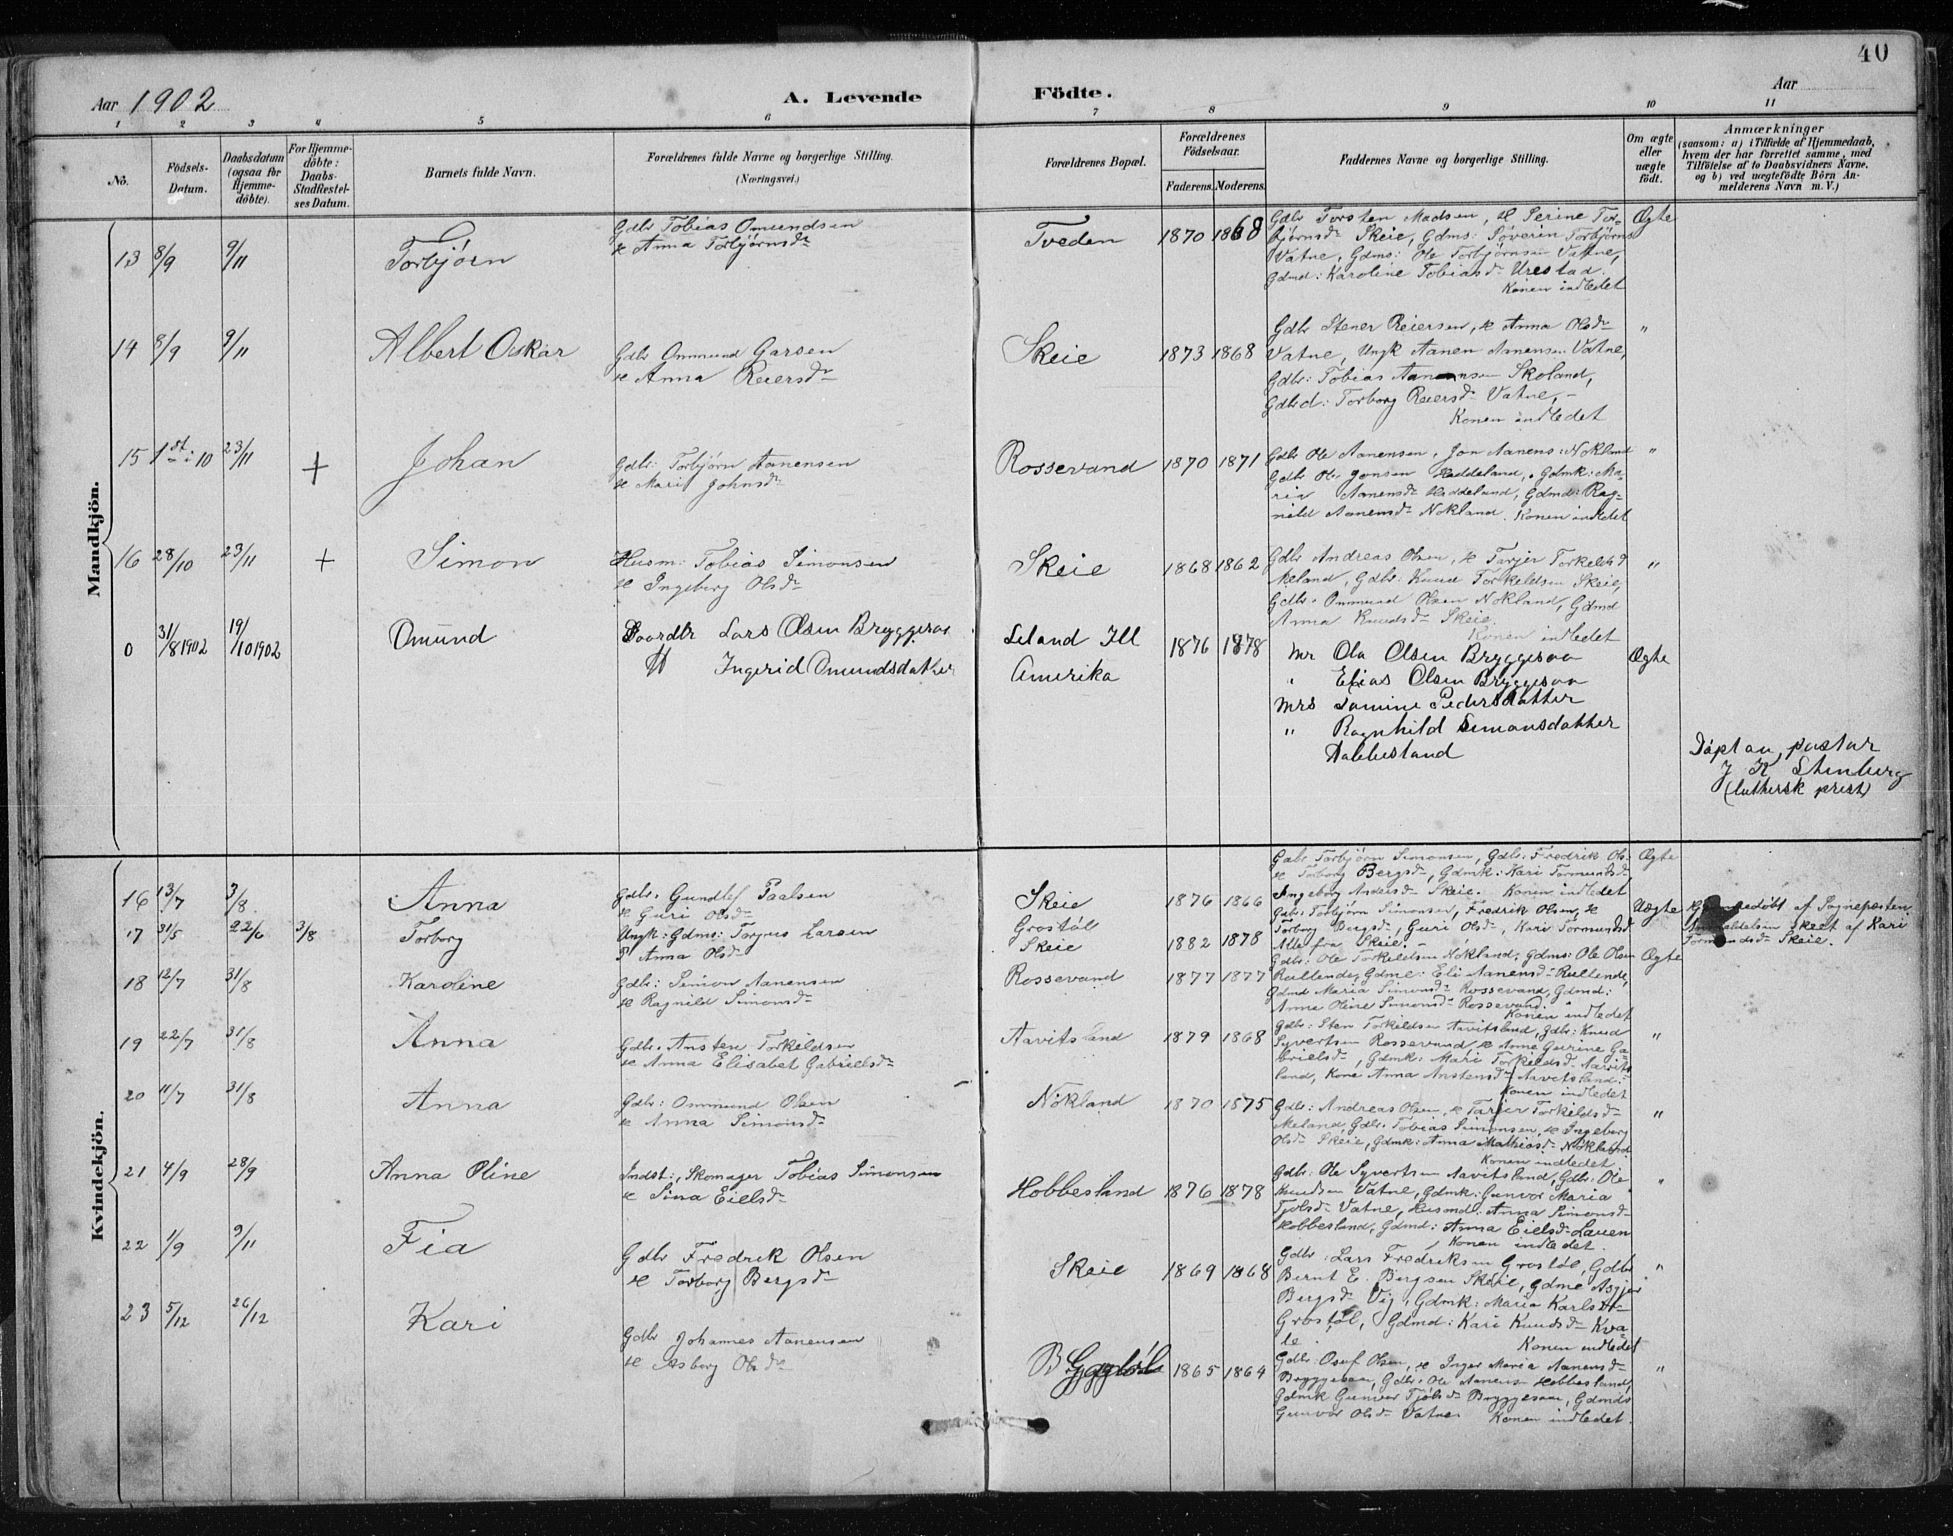 40
Aar 1902
A. Levende Födte.
Aar
1 2 3 4 5 6 7 8 9 10 11
No.
Födsels-Datum.
Daabsdatum (ogsaa for Hjemmedöbte).
For Hjemmedöbte: Daabs-Stadfæstelses Datum.
Barnets fulde Navn.
Forældrenes fulde Navne og borgerlige Stilling.
(Næringsvei.)
Forældrenes Bopæl.
Forældrenes Födselsaar.
Faderens. Moderens.
Faddernes Navne og borgerlige Stilling.
Om ægte eller uægte födt.
Anmærkninger
(saasom: a) i Tilfælde af Hjemmedaab, hvem der har forrettet samme, med Tilföielse af to Daabsvidners Navne, og b) ved uægtefödte Börn Anmelderens Navn m. V.)
Mandkjön.
13 8/9 9/11 Torbjörn
Gdbr Tobias Omundsen
& Anna Torbjörnsdr
Tveden 1870 1868
Gdbr Torsten Madsen, & Serine Tor-
björnsdr Skeie, Gdms: Söverin Torbjörns
Vatne, Gdms: Ole Torbjörnsen Vatne,
Gdmd: Karoline Tobiasdr Urestad.
Konen indledet
Ægte
14 8/9 9/11 Albert Oskar
Gdbr Ommund Garsen
& Anna Reiersdr
Skeie 1873 1868
Gdbr Stener Reiersen, & Anna Olsdr
Vatne, Ungk Aanen Aanensen Vatne,
Gdbr: Tobias Aanensen Skoland,
Gdbrd: Torborg Reiersdr Vatne, -
Konen indledet
"
15 1st: 10 23/11 + Johan
Gdbr: Torbjörn Aanensen
& Mari Johnsdr
Rossevand 1870 1871
Gdbr Ole Aanensen, Jon Aanens: Nökland
Gdbr Ole Jonsen Haddeland, Gdmk: Ma-
ria Aanensdr Haddeland, Gdmd: Rag-
nild Aanensdr Nökland. Konen indledet
"
16 28/10 23/11 + Simon
Husm: Tobias Simonsen
& Ingeborg Olsdr
Skeie 1868 1862
Gdbr Andreas Olsen, & Tarjer Torkelsd
Meland, Gdbr: Knud Torkeldsen Skeie,
Gdbr. Ommund Olsen Nökland, Gdmd
Anna Knudsdr Skeie.
Konen indledet
"
0 31/8 1902 19/10 1902 Omund
Gaardbr Lars Olsen Bryggesaa
H Ingerid Omundsdatter
Leland Ill
Amerika
1876 1878
Mr Ola Olsen Bryggesaa
" Elias Olsen Bryggesaa
Mrs Tomine Pedersdatter
" Ragnhild Simonsdatter
Habbestand
Ægte
Döpt av pastor
J K Stenberg
(luthersk prest)
Kvindekjön.
16 13/7 3/8. Anna
Gdbr. Gundlef Paalsen
& Guri Olsdr
Skeie 1876 1866
Gdbr Torbjörn Simonsen, Gdbr: Fredrik Ols:
& Torborg Bergsdr, Gdmk: Kari Tormundsdr
Ingeborg Andersdr Skeie. Konen indledet
Ægte
17 31/5 22/6 3/8 Torborg
Ungk: Gdms: Targus Larsen
P Anna Olsdr
Grostöl
Skeie
1882 1878
Gdbr: Torbjörn Simonsen, Fredrik Olsen, &
Torborg Bergsdr, Guri Olsdr, Kari Tormundsd
Alle fra Skeie. -
Uægte
af Sognepresten
Skeet af Kari
Tormundsdr Skeie.
18 12/7 31/8 Karoline
Gdbr: Simon Aanensen
& Ragnild Simonsdr
Rossevand 1877 1877
Gdbr: Ole Torkeldsen Nökland, Gdms: Ole Olsen
Rullende, Gdme: Eli Aanensdr Rullende,
Gdmd Maria Simonsdr Rossevand, Gdmd:
Anna Oline Simonsdr Rossevand.
Konen indledet
Ægte
19 22/7 31/8 Anna
Gdbr. Ansten Torkeldsen
& Anna Elisabet Gabrielsdr
Aavitsland 1879 1868
Gdbr: Sten Torkeldsen Aavitsland, Gdbr: Knud
Syvertsen Rossevand, & Anne Gurine Ga-
brielsdr, Gdmk: Mari Torkeldsdr Aavits
land, Kone Anna Anstensdr Aavitsland:
Konen indledet
"
20 11/7 31/8 Anna
Gdbr: Ommund Olsen
& Anna Simonsdr
Nökland 1870 1875
Gdbr: Andreas Olsen, & Tarjer Torkeldsdr
Meland, Gdbr: Tobias Simonsen, & Ingeborg
Olsdr Skeie, Gdmk: Anna Mathiasdr Nökland
Konen indledet
"
21 4/9 28/9 Anna Oline
Indst:, Skomager Tobias Simonsen
& Sina Eielsdr
Hobbesland 1876 1878
Gdbr: Ole Syvertsen Aavitsland, Gdbr: Ole
Knudsen Vatne, Gdmk: Gunvor Maria
Tjölsdr Vatne, Husmd: Anna Simonsdr
Hobbesland, Gdmd: Anna Eielsdr Lauen
Konen indledet.
"
22 1/9 9/11 Fia
Gdbr Fredrik Olsen
& Torborg Bergsdr
Skeie 1869 1868
Gdbr: Lars Fredriksen Grostöl, Gdbr
Bernt E. Bergsen Skeie, Gdme Asgjer
Bergsdr Vig, Gdmk: Maria Karlsdr
Grostöl, Gdmd: Kari Knudsdr Kva-
le Konen indledet
"
23 5/12 26/12 Kari
Gdbr Johannes Aanensen
& Asborg Olsdr
1865 1864
Gdbr Osuf Olsen, & Inger Maria Aanensdr
Bryggesaa, Gdbr: Ole Aanens Hobbesland,
Gdmk Gunvor Tjöls dr Bryggesaa, Gdmds
Gunvor Olsdr Vatne Konen indledet.
"